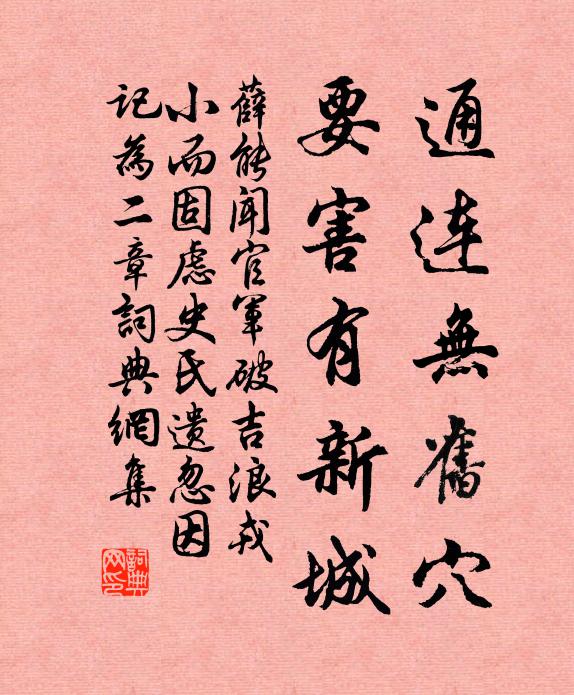 通连無舊穴
要害有新城
薛能闻官军破吉浪戎
小而固虑史氏遗忽因
记為二章詞典網集
詞典网印